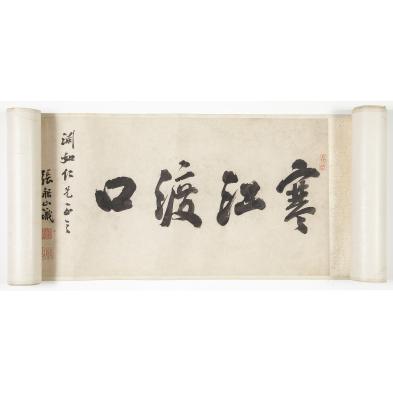 寒江渡口
淵如仁兄正之
張船山識